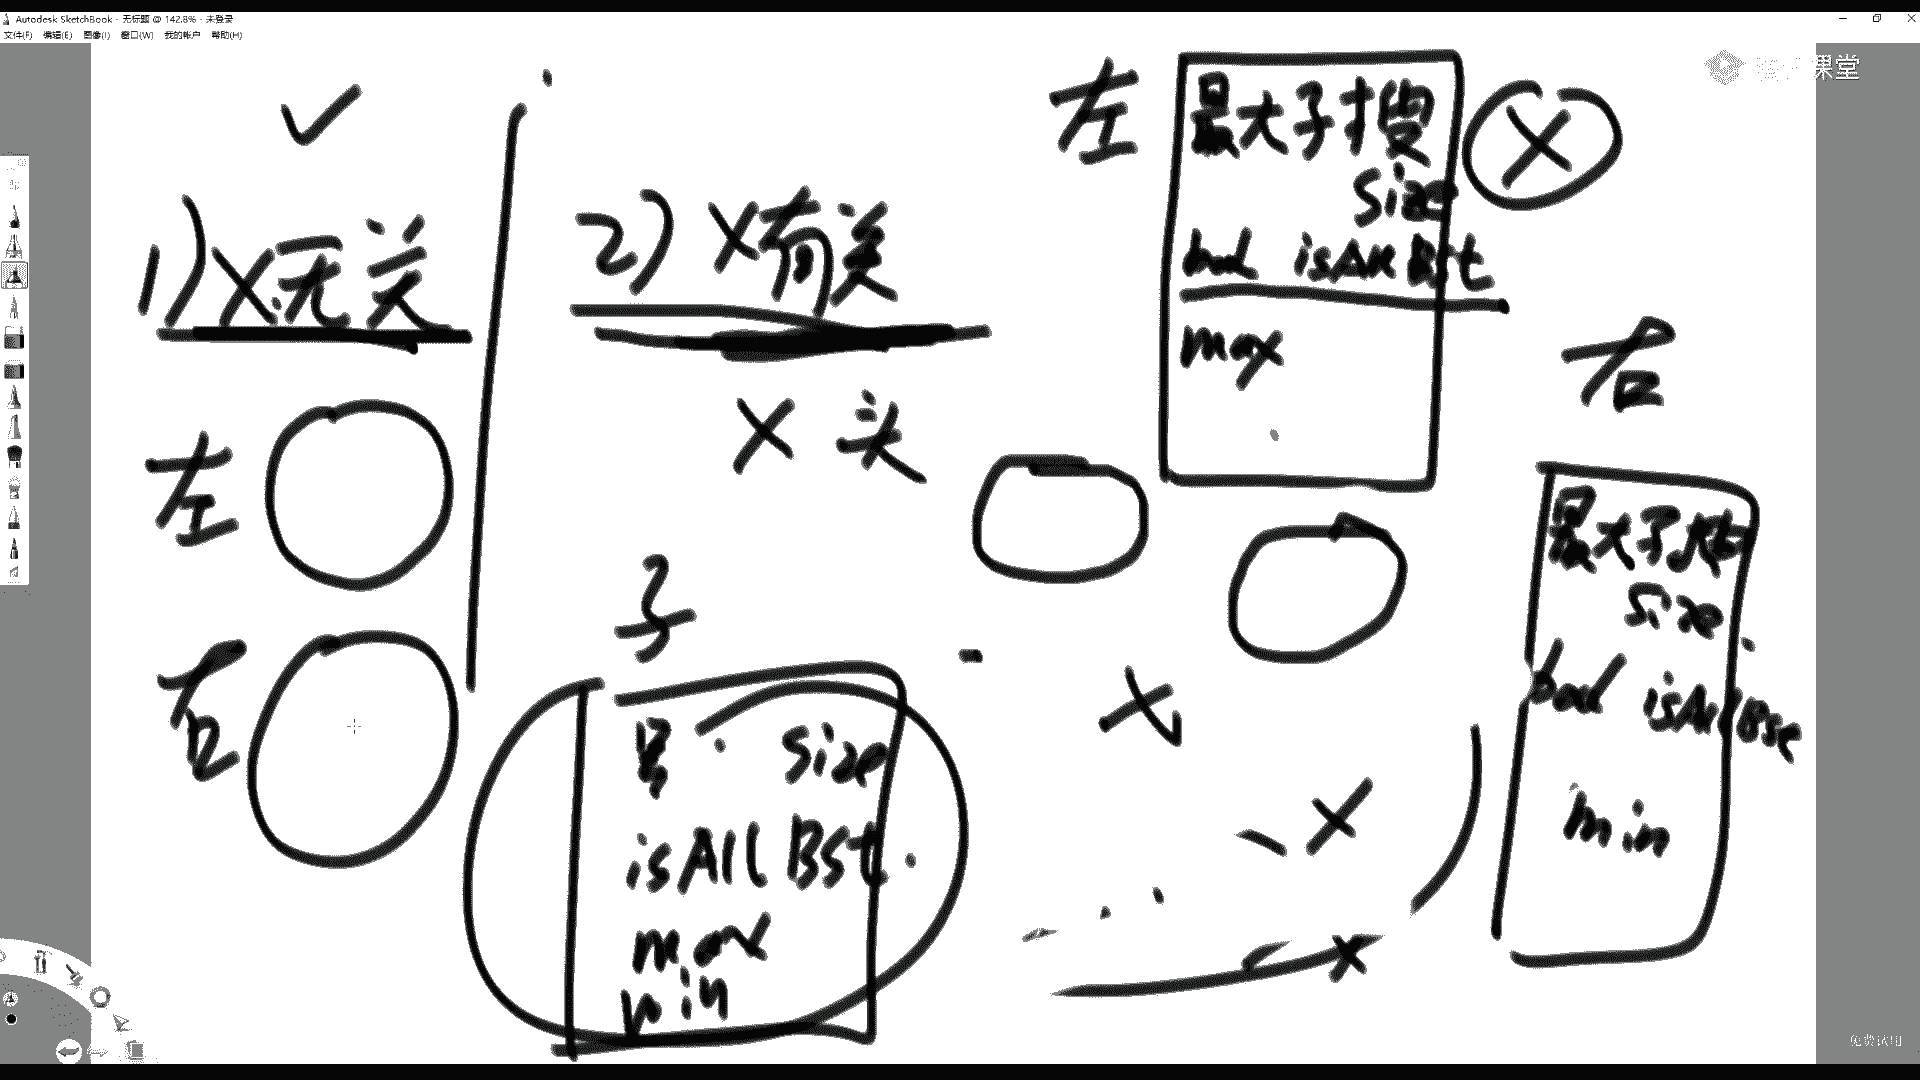 Autodesk SketchBook - 无标题 @ 142.8% - 未登录
文件(F) 编辑(E) 图像(I) 窗口(W) 我的帐户 帮助(H)
课堂
1) X无关
左
右
2) X有关
X 头
子
size
isAll BSt
max
min
左
最大子搜
size
bool isAll BSt
max
X
右
最大子
size
bool isAll Bst
min
X
X
X
免费试用